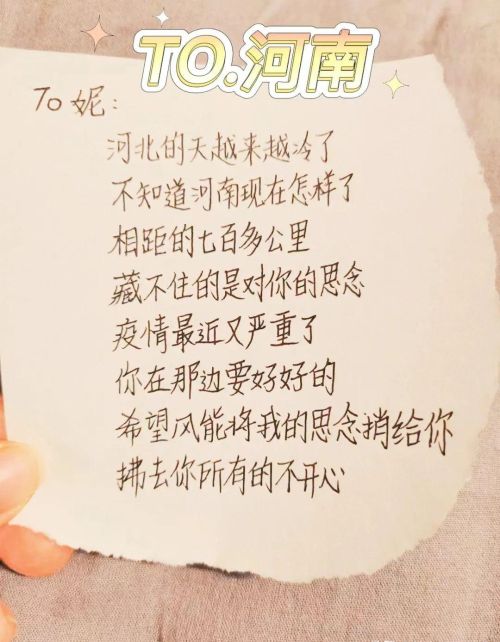 TO.河南
To 妮：
河北的天越来越冷了
不知道河南现在怎样了
相距的七百多公里
藏不住的是对你的思念
疫情最近又严重了
你在那边要好好的
希望风能将我的思念捎给你
拂去你所有的不开心